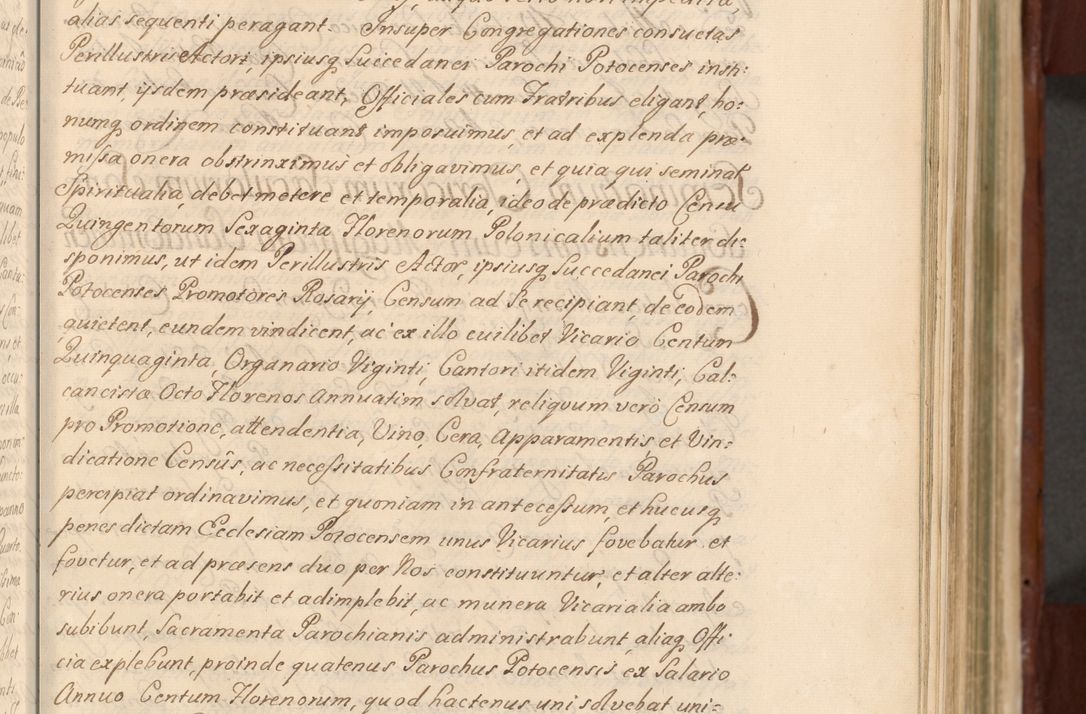 alias sequenti peragant. Insuper Congregationes consuetas
Perillustris Actor, ipsiusq Succedanei Parochi Potocenses insti-
tuant, ijsdem præsideant, Officiales cum Fratribus eligant, ho-
rumq ordinem constituant imposuimus, et ad explenda præ-
missa onera obstrinximus et obligavimus, et quia qui seminat
Spiritualia, debet metere et temporalia, ideo de prædicto Censu
Quingentorum Sexaginta Florenorum Polonicalium taliter di-
sponimus, ut idem Perillustris Actor, ipsiusq Succedanei Parochi
Potocenses Promotores Rosarij, Censum ad se recipiant, de eodem
quietent, eundem vindicent, ac ex illo cuilibet Vicario Centum
Quinquaginta, Organario Viginti, Cantori itidem Viginti, Cal-
cancistæ Octo Florenos Annuatim solvat, reliquum verò Censum
prò Promotione, attendentia, Vino, Cera, Apparamentis, et Vin-
dicatione Censûs, ac necessitatibus Confraternitatis Parochus
percipiat ordinavimus, et quoniam in antecessum, et hucusq
penes dictam Ecclesiam Potocensem unus Vicarius fovebatur et
fovetur, et ad præsens duo per Nos constituuntur, et alter alte-
rius onera portabit et adimplebit, ac munera Vicarialia ambo
subibunt, Sacramenta Parochianis administrabunt, aliaq Offi-
cia explebunt, proinde quatenus Parochus Potocensis ex Salario
Annuo Centum Florenorum, quod hactenus uni solvebat uni-